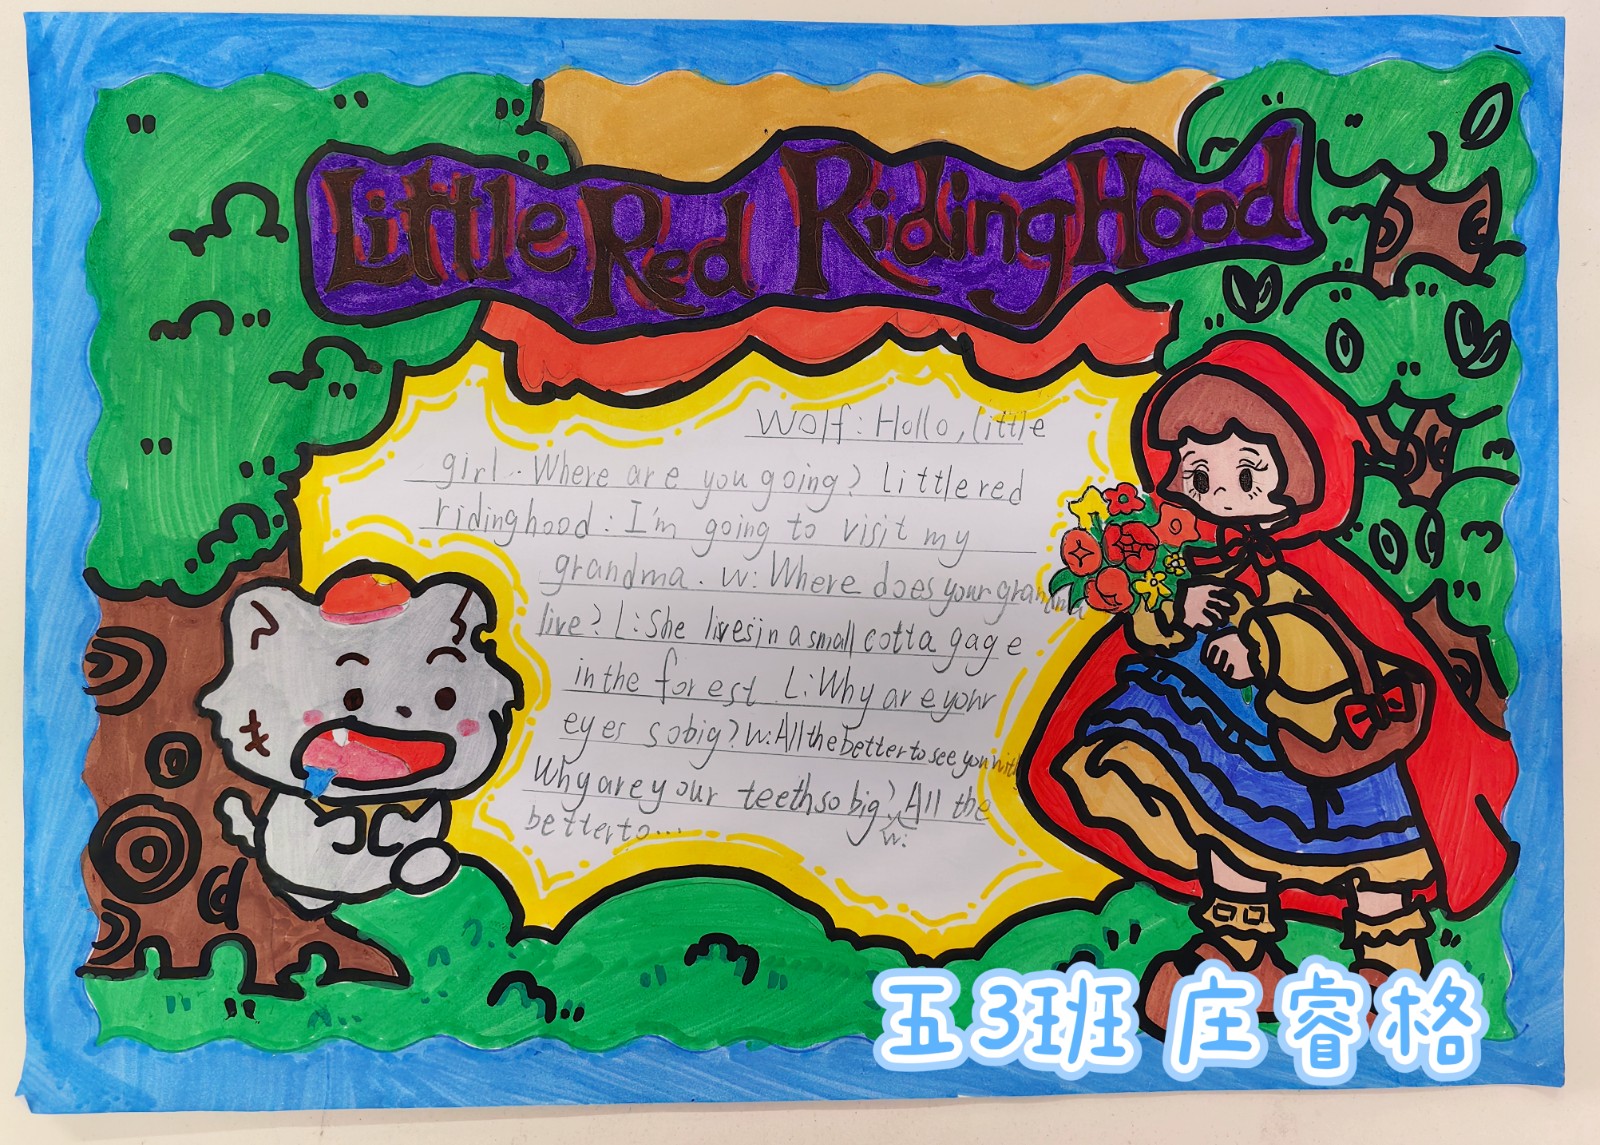 Little Red Riding Hood
Wolf: Hollo, little
girl. Where are you going? little red
riding hood: I'm going to visit my
grandma. W: Where does your grandma
live? L: She lives in a small cotta gage
in the forest. L: Why are your
eyes so big? W: All the better to see you with
Why are your teeth so big? All the
W:
better to...
五3班 庄睿格